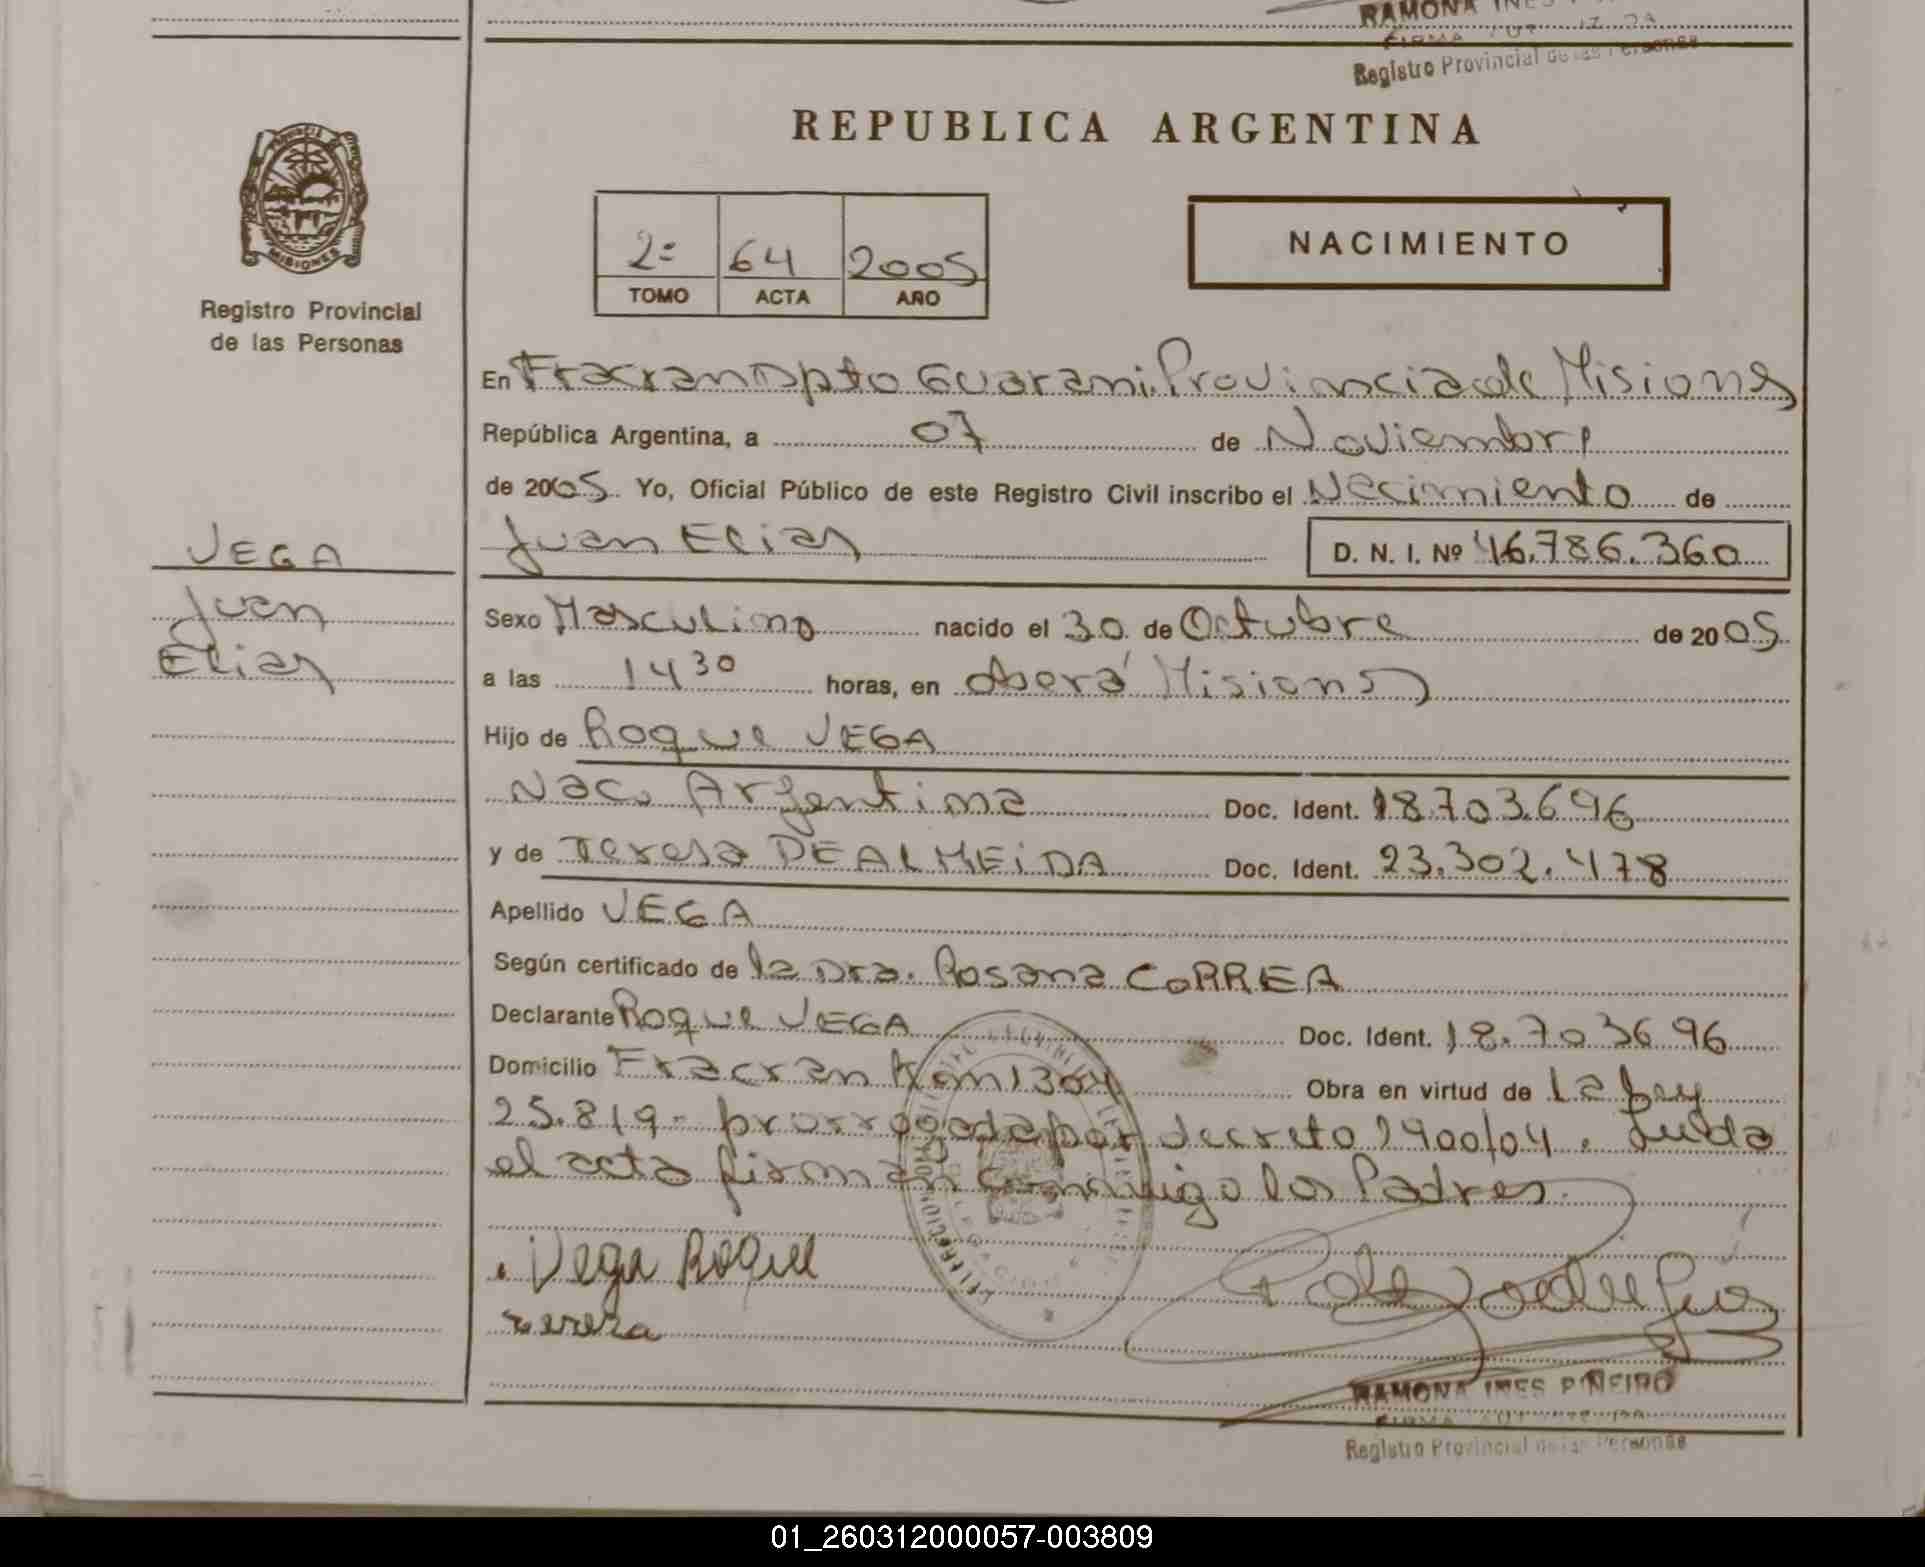 RAMONA INES
Registro Provincial de las Personas
REPUBLICA ARGENTINA
PROVINCIA
MISIONES
Registro Provincial
de las Personas
2= 64 2005
TOMO ACTA AÑO
NACIMIENTO
En Fracran Dpto Guarani. Provinncia de Misiones
República Argentina, a 07 de Noviembre
de 2005. Yo, Oficial Público de este Registro Civil inscribo el Nacimiento de
VEGA
Juan Elias
Juan Elias
D. N. I. Nº 46.786.360
Sexo Masculino nacido el 30 de Octubre de 2005
a las 14 30 horas, en Oberá Misiones
Hijo de Roque VEGA
Nac. Argentina Doc. Ident. 18.703.696
y de Teresa DE ALMEIDA Doc. Ident. 23.302.478
Apellido VEGA
Según certificado de la Dra. Rosana CORREA
Declarante Roque VEGA Doc. Ident. 18.703696
Domicilio Fracran Km 1304 Obra en virtud de la Ley
25.819- prorrogada por decreto 1900/04. Leida
el acta firman conmigo los Padres.
Vega Roque
Tereza
RAMONA INES PIÑEIRO
Registro Provincial de las Personas
01_260312000057-003809